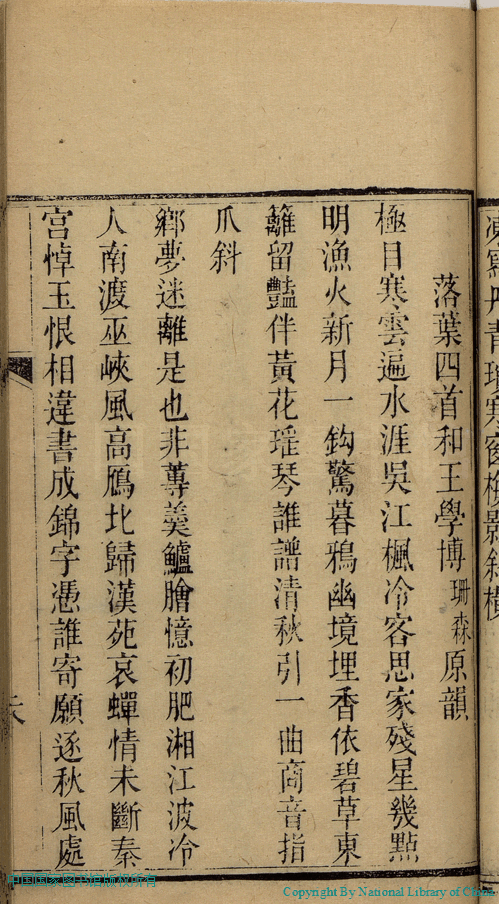 丹青寒窗影
落葉四首和王學博珊森原韻
極目寒雲遍水涯吳江楓冷客思家殘星幾點
明漁火新月一鈎驚暮鴉幽境埋香依碧草東
籬留豔伴黃花瑤琴誰譜清秋引一曲商音指
爪斜
鄉夢迷離是也非蓴羹鱸膾憶初肥湘江波冷
人南渡巫峽風高鴈北歸漢苑哀蟬情未斷秦
宮悼玉恨相違書成錦字憑誰寄願逐秋風處
中国国家图书馆版权所有
Copyright By National Library of China